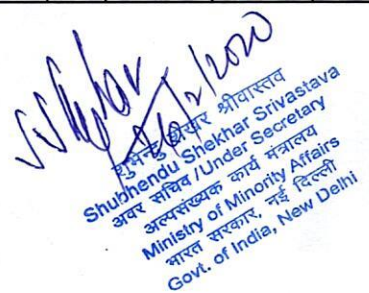 26/2/2020
शुभेन्दु शेखर श्रीवास्तव
Shubhendu Shekhar Srivastava
अवर सचिव /Under Secretary
अल्पसंख्यक कार्य मंत्रालय
Ministry of Minority Affairs
भारत सरकार, नई दिल्ली
Govt. of India, New Delhi